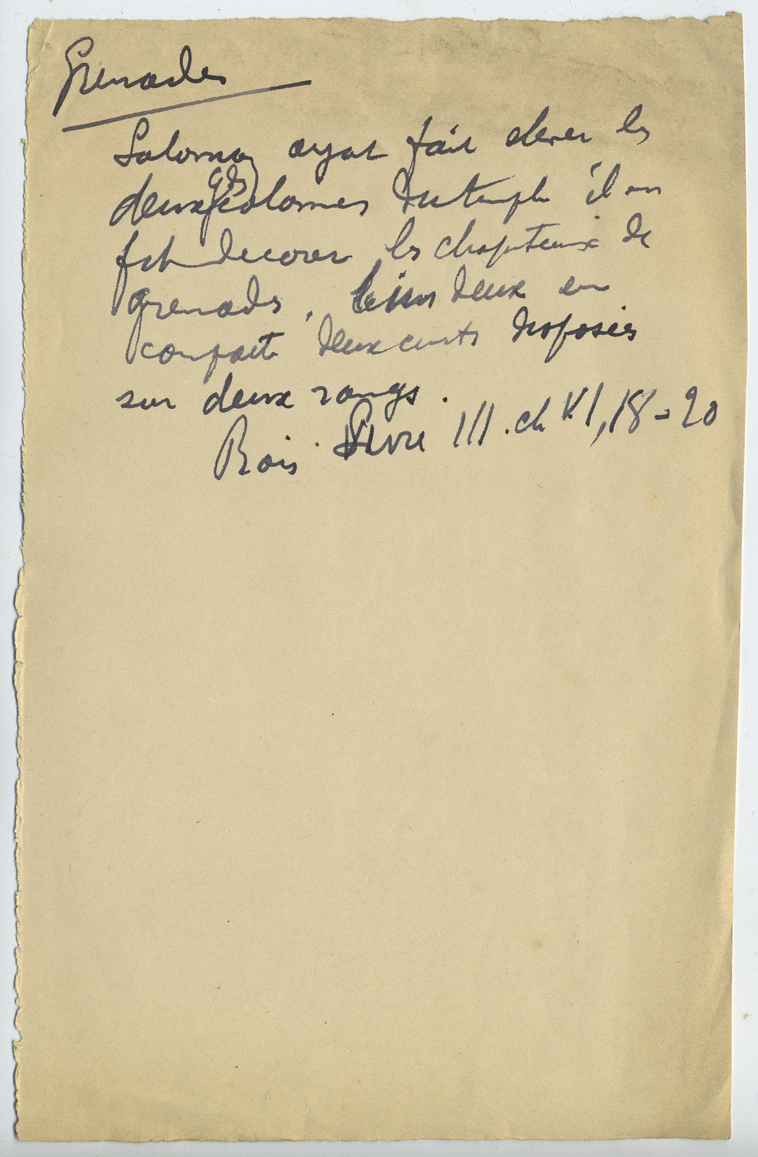 Grenades
Salomon ayant fait élever les
deux gdes colonnes du temple il en
fit décorer les chapiteaux de
grenades, deux en
comptait deux cents disposées
sur deux rangs.
Rois Livre III. ch VI, 18-20